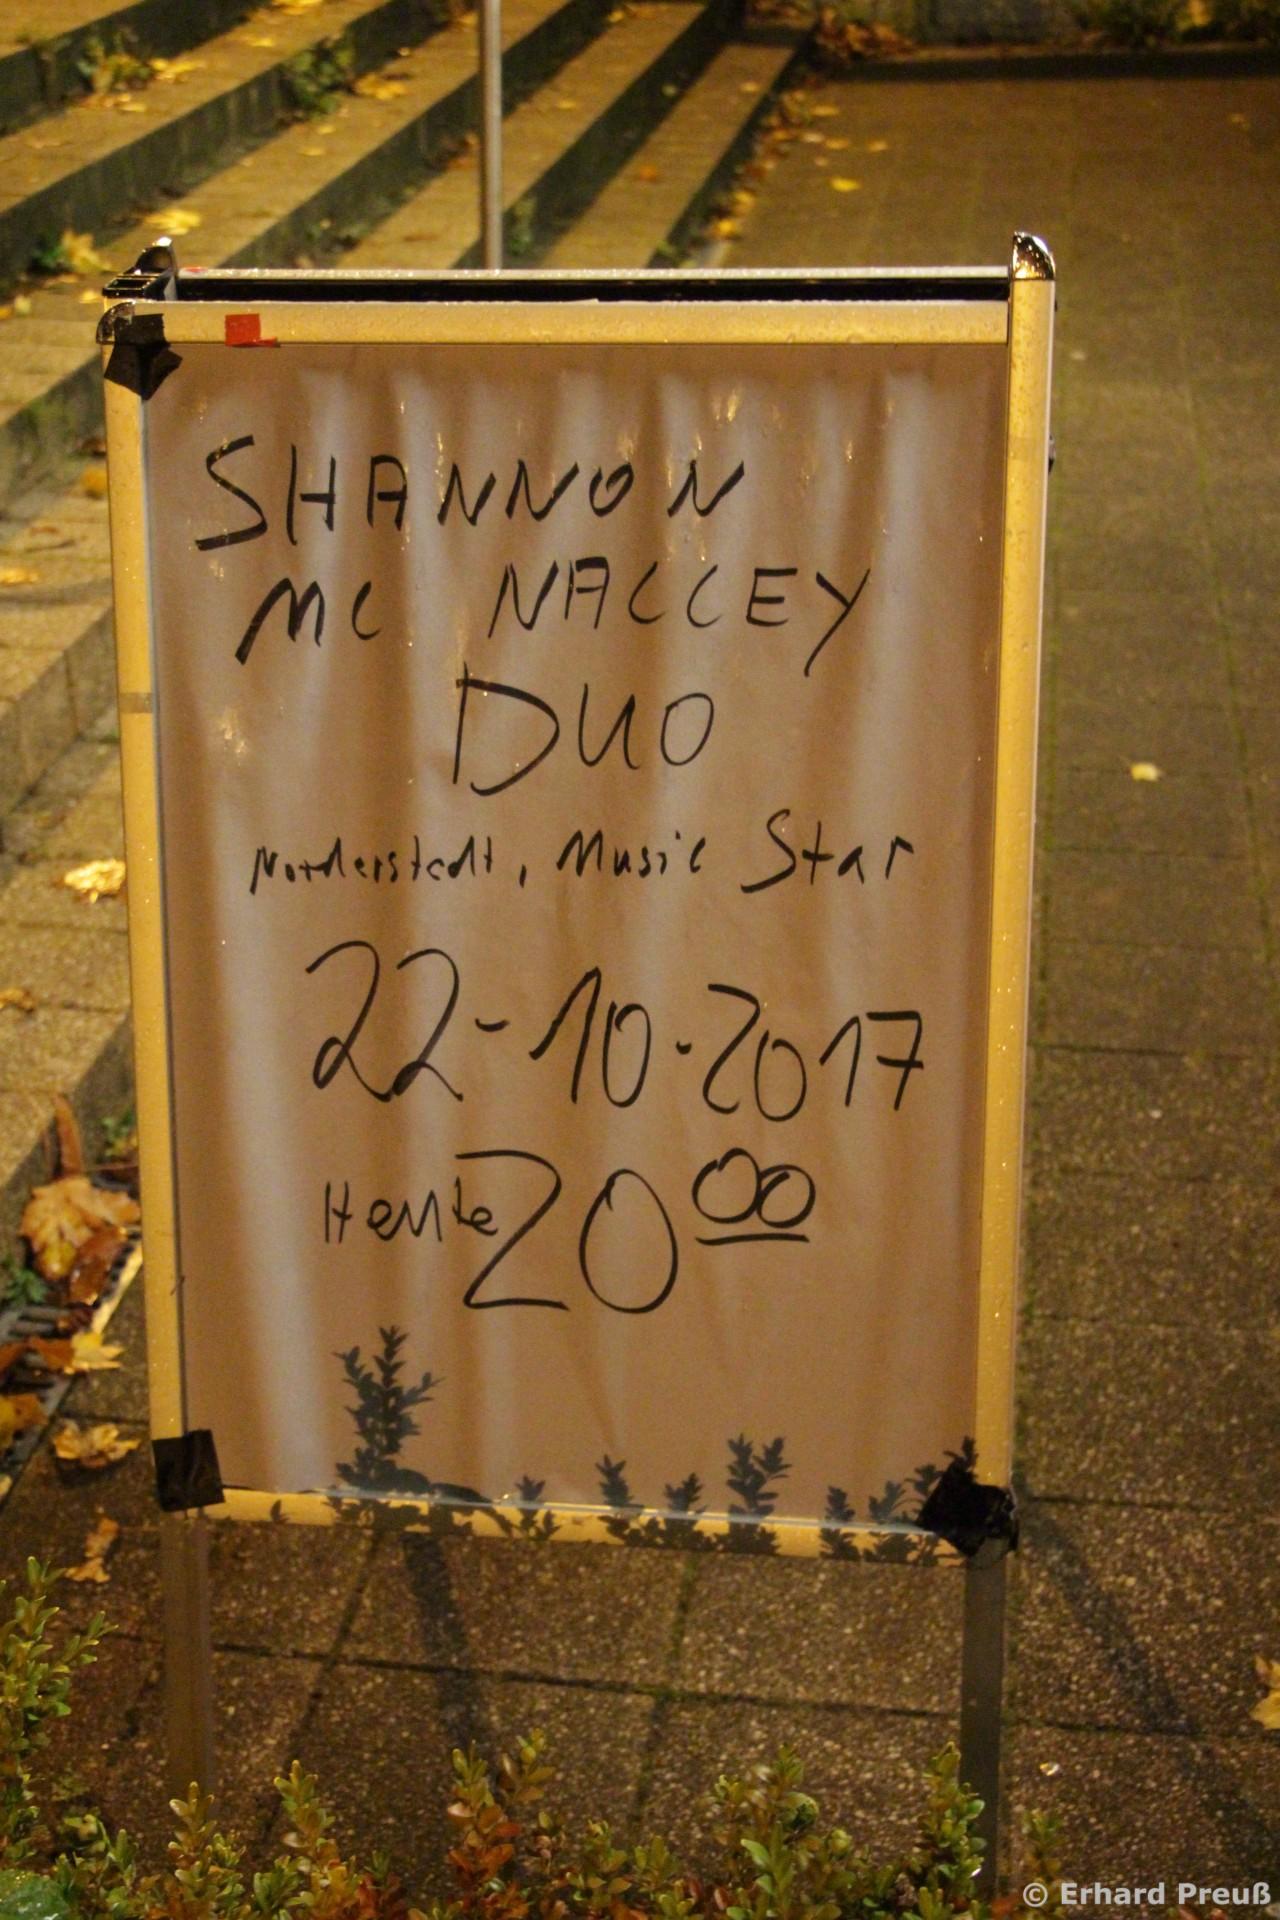 SHANNON
MC NALLEY
DUO
Norderstedt, Music Star
22-10.2017
Heute 20 00
© Erhard Preuß